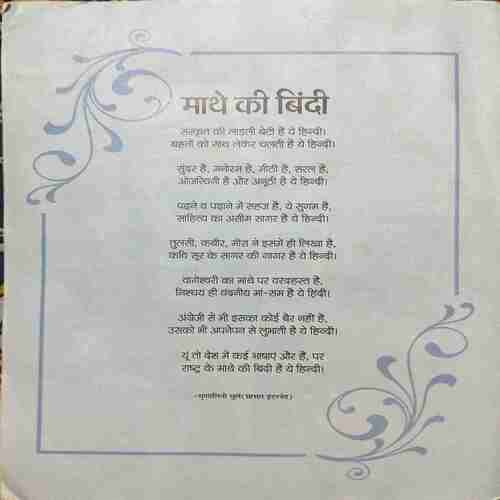 माथे की बिंदी
संस्कृत की लाड़ली बेटी है ये हिन्दी।
बहनों को साथ लेकर चलती है ये हिन्दी।
सुंदर है, मनोरम है, मीठी है, सरल है,
ओजस्विनी है और अनूठी है ये हिन्दी।
पढ़ने व पढ़ाने में सहज है, ये सुगम है,
साहित्य का असीम सागर है ये हिन्दी।
तुलसी, कबीर, मीरा ने इसमें ही लिखा है,
कवि सूर के सागर की गागर है ये हिन्दी।
वागेश्वरी का माथे पर वरदहस्त है,
निश्चय ही वंदनीय मां-सम है ये हिंदी।
अंग्रेजी से भी इसका कोई बैर नहीं है,
उसको भी अपनेपन से लुभाती है ये हिन्दी।
यूं तो देश में कई भाषाएं और हैं, पर
राष्ट्र के माथे की बिंदी है ये हिन्दी।
-मृणालिनी घुले (साभार इंटरनेट)